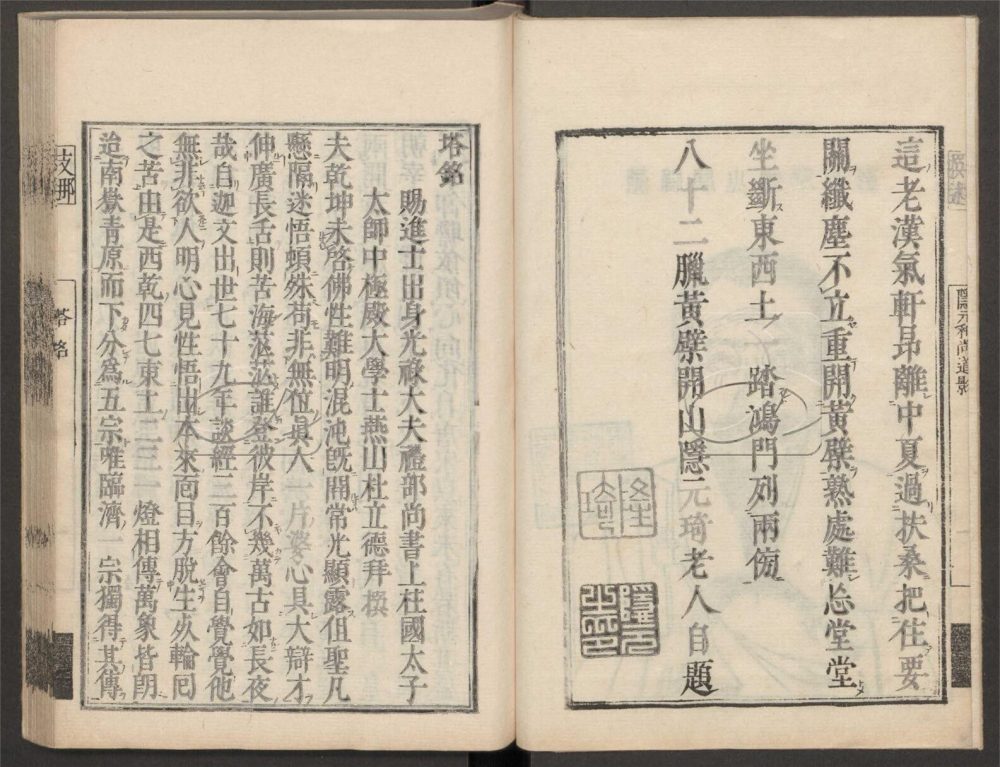 這老漢氣軒昂離中夏過扶桑把住要
關纖塵不立重開黃檗熟處難忘堂堂
坐斷東西土一踏鴻門列兩傍
八十二臘黃檗開山隱元琦老人自題
隱元和尚道影
塔銘
賜進士出身光祿大夫禮部尚書上柱國太子
太師中極殿大學士燕山杜立德拜撰
夫乾坤未啓佛性難明混沌旣開常光顯露但聖凡
懸隔迷悟頓殊苟非無位眞人一片婆心具大辯才
伸廣長舌則苦海茫茫誰登彼岸不幾萬古如長夜
哉自迦文出世七十九年談經三百餘會自覺覺他
無非欲人明心見性悟出本來面目方脫生死輪回
之苦由是西乾四七東土二三一燈相傳萬象皆朗
迨南嶽青原而下分爲五宗唯臨濟一宗獨得其傳
塔銘